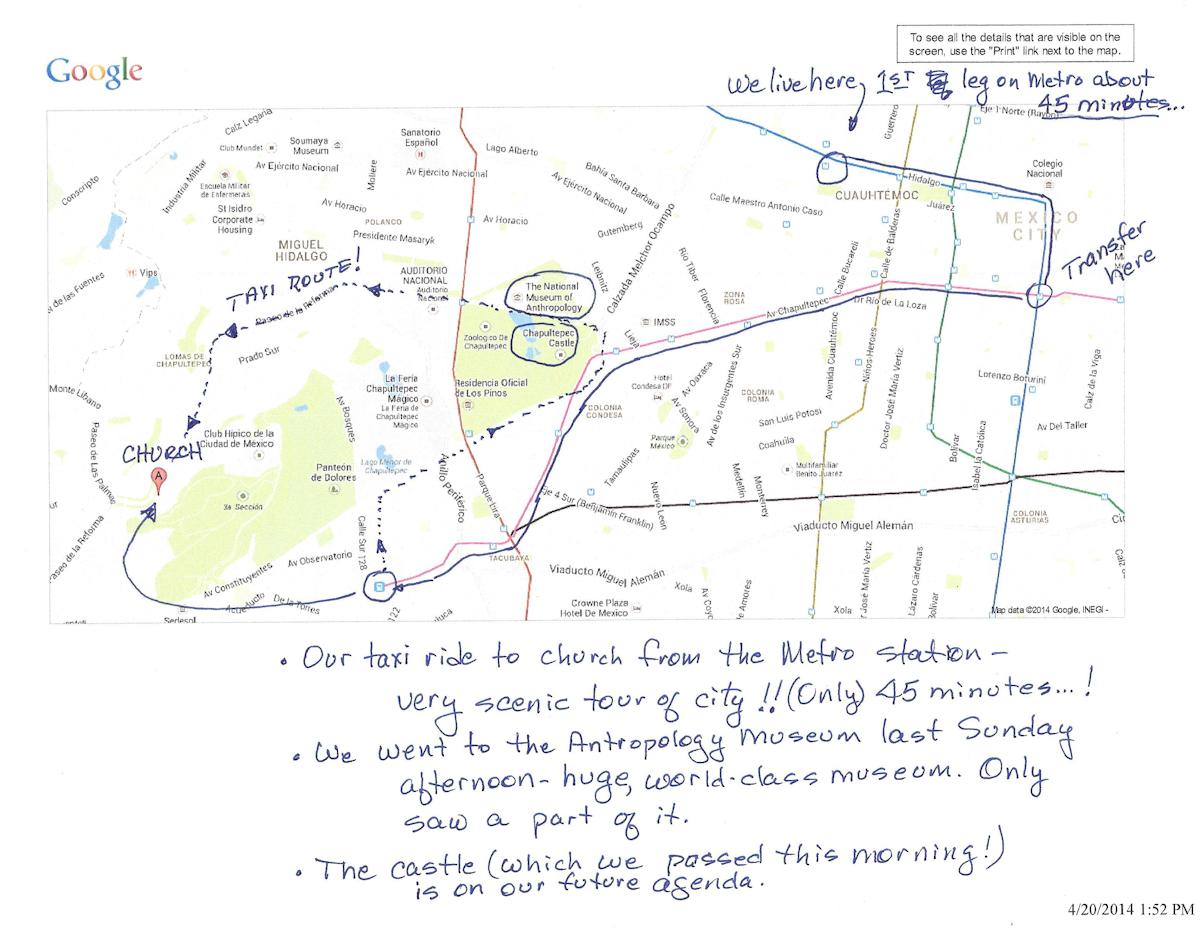 To see all the details that are visible on the
screen, use the "Print" link next to the map.
Google
We live here, 1ST leg on Metro about
45 minutes...
Calz Legaria
Club Mundet
Soumaya
Museum
Sanatorio
Español
Lago Alberto
Guerrero
Eje 1 Norte (Rayon)
Conscripto
Industria Militar
Escuela Militar
de Enfermeras
Av Ejército Nacional
Moliere
Av Ejército Nacional
Av Ejército Nacional
Bahía Santa Barbara
Colegio
Nacional
Hidalgo
CUAUHTÉMOC
Juárez
St Isidro
Corporate
Housing
Av Horacio
POLANCO
Av Horacio
Presidente Masaryk
Gutemberg
Calzada Melchor Ocampo
Calle Maestro Antonio Caso
MEXICO
CITY
MIGUEL
HIDALGO
Vips
de las Fuentes
TAXI ROUTE!
Paseo de la Reforma
AUDITORIO
NACIONAL
Auditorio
Nacional
The National
Museum of
Anthropology
Leibnitz
Rio Tiber
Florencia
ZONA
ROSA
Calle Bucareli
Calle de Balderas
Transfer
here
Av Chapultepec
Dr Río de La Loza
Zoologico De
Chapultepec
Chapultepec
Castle
Lieja
IMSS
LOMAS DE
CHAPULTEPEC
Prado Sur
Monte Libano
La Feria
Chapultepec
Mágico
La Feria de
Chapultepec
Mágico
Residencia Oficial
de Los Pinos
Hotel
Condesa DF
Av Oaxaca
Av Sonora
Av de los Insurgentes Sur
COLONIA
ROMA
Avenida Cuauhtémoc
Niños Heroes
Doctor José María Vertiz
Lorenzo Boturini
Calz de la Viga
COLONIA
CONDESA
San Luis Potosi
Coahuila
Av Del Taller
Paseo de Las Palmas
CHURCH
A
Club Hípico de la
Ciudad de México
Av Bosques
Lago Menor de
Chapultepec
Parque
México
Tamaulipas
Multifamiliar
Benito Juárez
Bolivar
Isabel la Católica
Panteón
de Dolores
3a Sección
Anillo Periférico
Parque Lira
Eje 4 Sur (Benjamin Franklin)
Nuevo León
Medellin
Monterrey
COLONIA
ASTURIAS
Viaducto Miguel Alemán
Paseo de la Reforma
Calle Sur 128
Av Observatorio
TACUBAYA
Av Constituyentes
Acueducto
De la Torres
Viaducto Miguel Alemán
Xola
Av Coyo
de Amores
José María Vertiz
Lázaro Cardenas
Bolivar
Sedesol
122
Crowne Plaza
Hotel De Mexico
Xola
Map data ©2014 Google, INEGI -
• Our taxi ride to church from the Metro station -
very scenic tour of city!! (Only) 45 minutes...!
• We went to the Antropology Museum last Sunday
afternoon - huge, world-class museum. Only
saw a part of it.
• The castle (which we passed this morning!)
is on our future agenda.
4/20/2014 1:52 PM